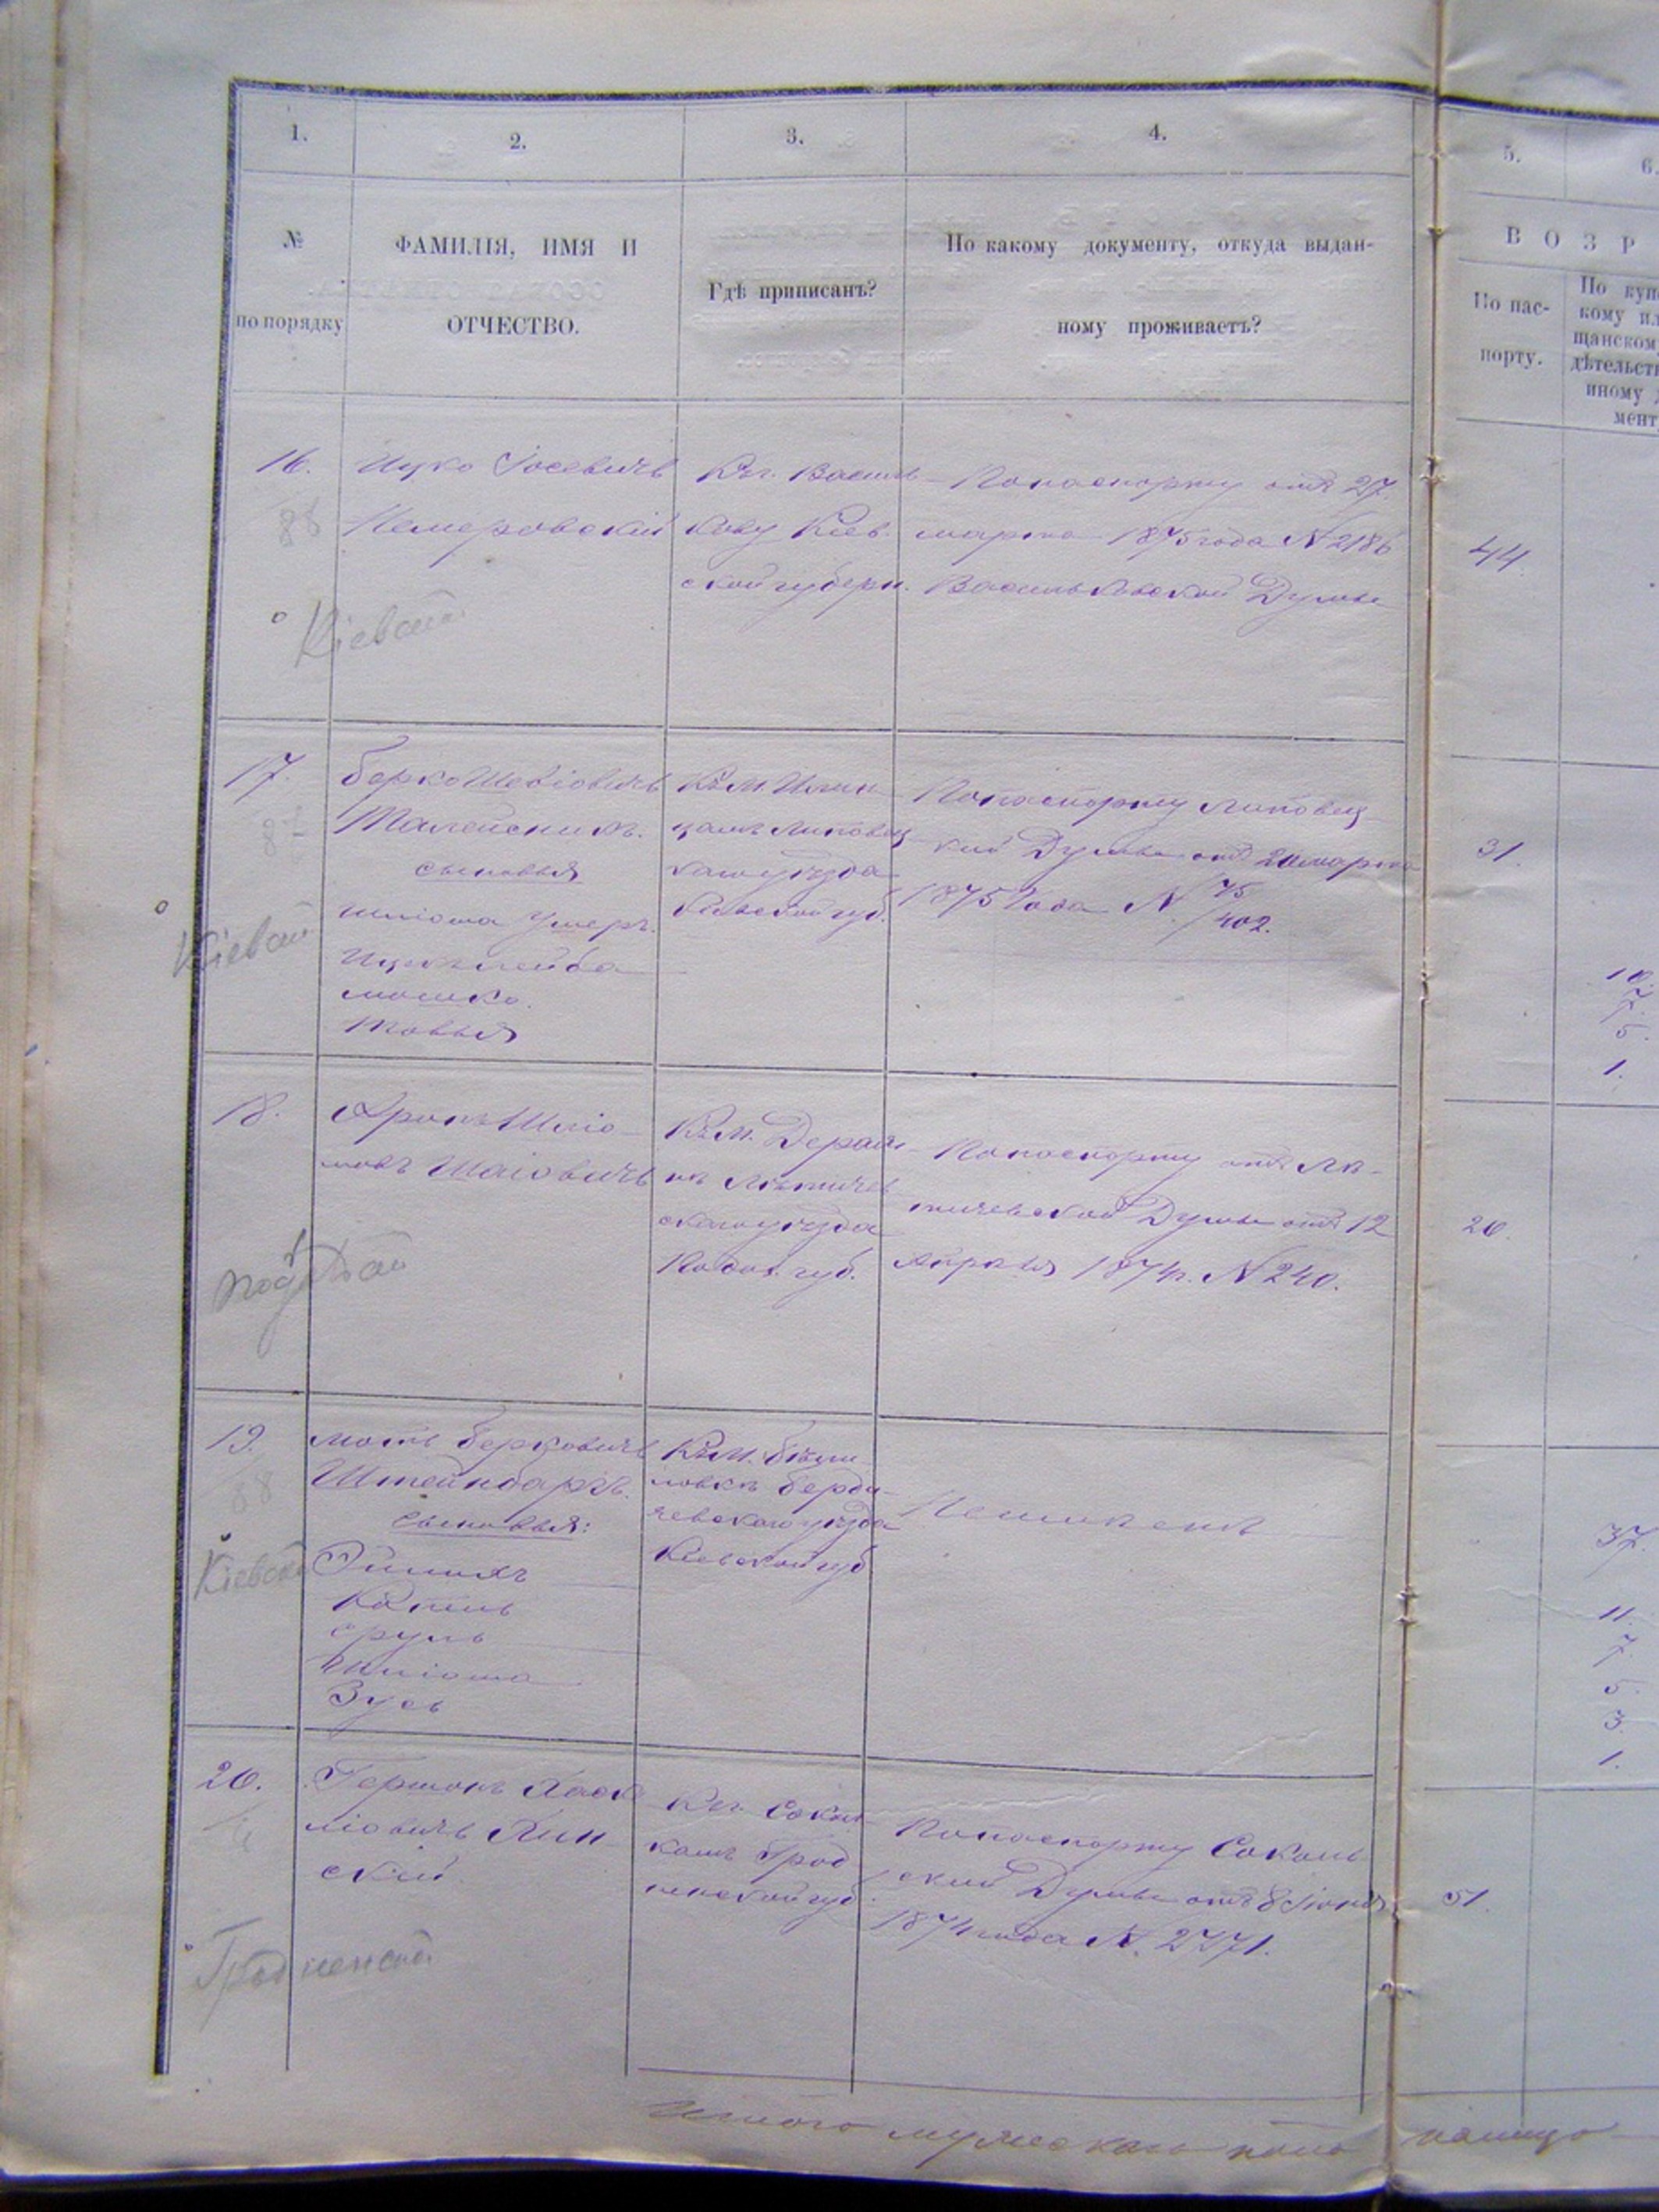 1.
2.
3.
4.
5.
6.
№
по порядку
ФАМИЛІЯ, ИМЯ И
ОТЧЕСТВО.
Гдѣ приписанъ?
По какому документу, откуда выдан-
ному проживаетъ?
ВОЗР
По пас-
порту.
По куп
кому ил
щанском
дѣтельст
иному
мент
16.
88
Ицко Іосевичъ
Немеровскій
Къ г. Василь-
кову Кіев
ской губерн.
По паспорту отъ 27
марта 1875 года N 2186
Васильковской Думы
44
Кіевской
17.
Берко Шевіовичъ
Талейсникъ.
сыновья
Шліома Ушеръ.
Ицко Лейба
Мошко.
Товья
Къ м. Илин
цамъ Липовец
каго уѣзда
Кіевской губ.
По паспорту Липовец
кой Думы отъ 20 марта
1875 года N 75
/402.
31.
10.
7.
5.
1.
Кіевской
18.
Аронъ Шлiо-
мовъ Шаіовичъ
Къ м. Деражн-
нѣ Летичев
скаго уѣзда
Подол. губ.
По паспорту отъ Ле-
тичевской Думы отъ 12
Апрѣля 1874 г. N 240.
20.
19.
88
Моть Берковичъ
Штейнбаргъ.
сыновья:
Эйнихъ
Копель
Сруль
Шліома
Зусь
Къ м.
ловкѣ Берди-
чевскаго уѣзда
Кіевской губ
37.
11.
7.
5.
3.
1.
Кіевской
20.
Гершонъ Хаск
ліовичъ Лин
скій.
Къ г. Соколь
камъ Грод
ненской губ.
По паспорту Соколь
ской Думы отъ 8 Іюня
1874 года N. 2771.
51.
Гродненской
Итого мужескаго пола